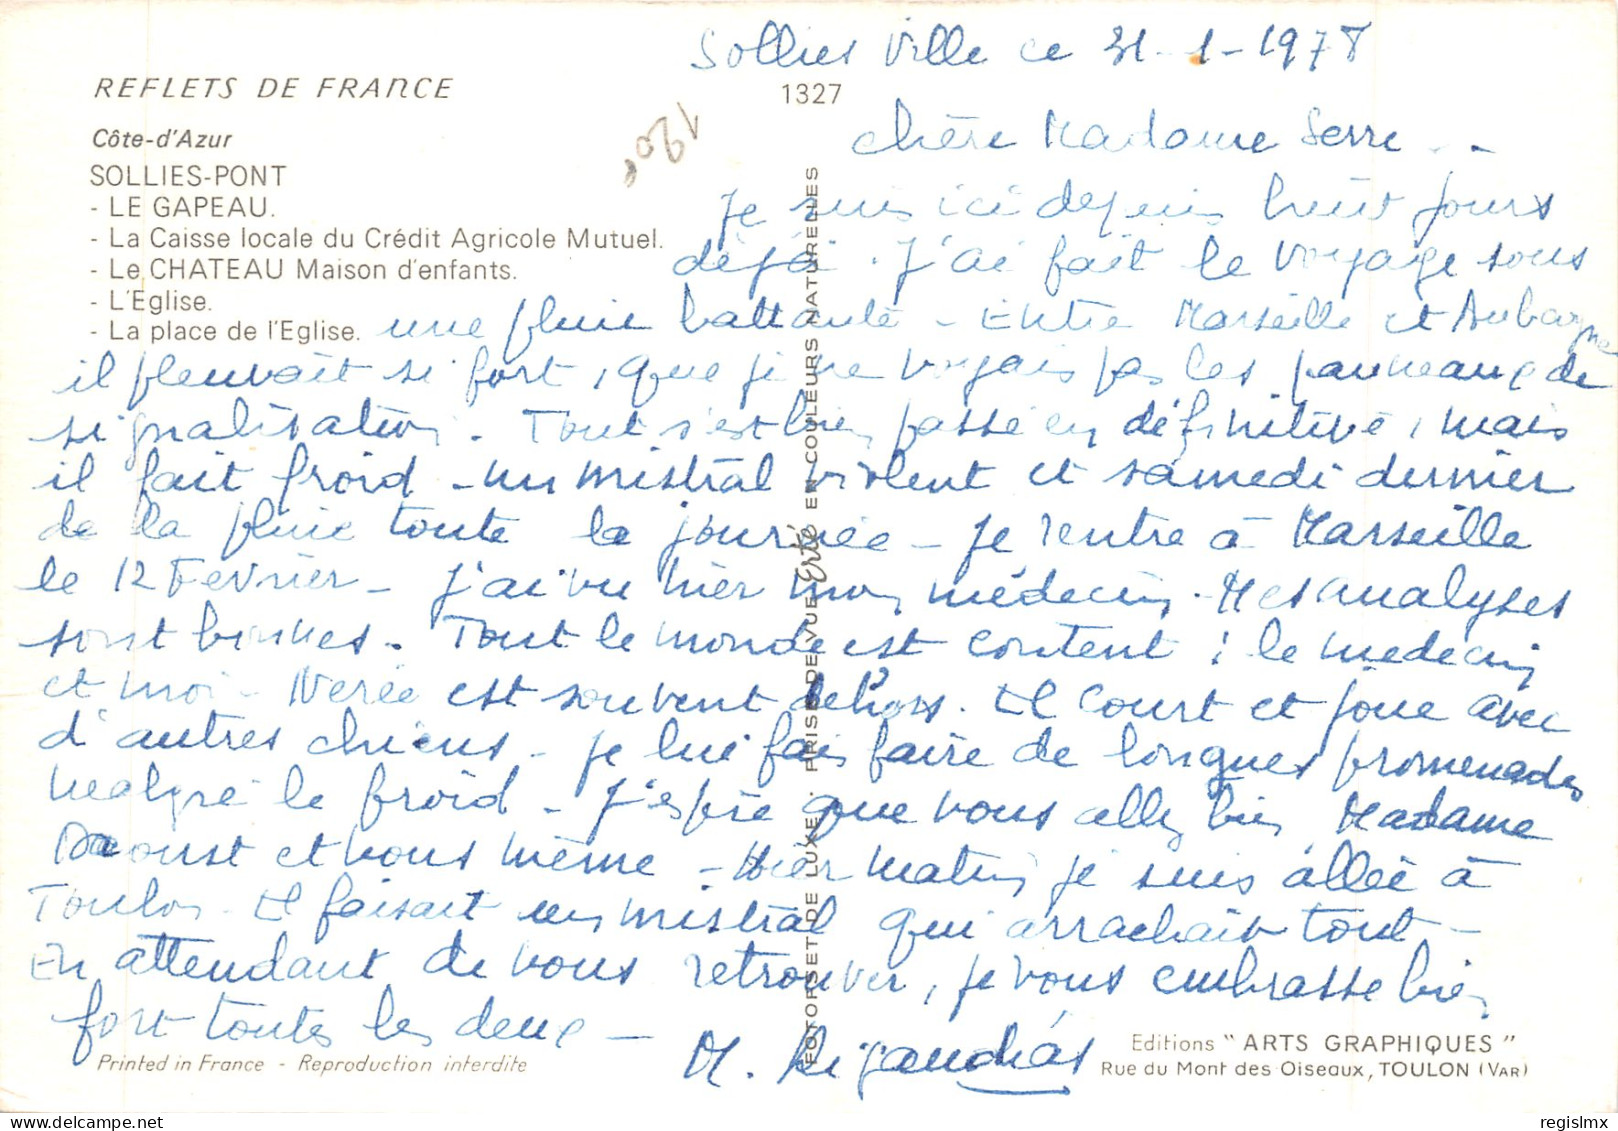 Sollies Ville ce 31-1-1978
REFLETS DE FRANCE
1327
Côte-d'Azur
SOLLIES-PONT
- LE GAPEAU.
- La Caisse locale du Crédit Agricole Mutuel.
- Le CHATEAU Maison d'enfants.
- L'Eglise.
- La place de l'Eglise.
120F
chère Madame Serre . .
Je suis ici depuis huit jours
déjà. J'ai fait le voyage sous
une pluie battante - Entre Marseille et Aubagne
il pleuvait si fort, que je ne voyais pas les panneaux de
signalisation. Tout s'est bien passé en définitive, mais
il fait froid - un mistral violent et samedi dernier
de la pluie toute la journée - Je rentre à Marseille
le 12 Février - J'ai vu hier mon médecin. Mes analyses
sont bonnes. Tout le monde est content : le médecin
et moi - Nérée est souvent dehors. Il court et joue avec
d'autres chiens - Je lui fais faire de longues promenades
malgré le froid - J'espère que vous allez bien Madame
Daoust et vous même - Hier matin je suis allée à
Toulon - Il faisait un mistral qui arrachait tout -
En attendant de vous retrouver, je vous embrasse bien
fort toutes les deux -
FOTORSET DE LUXE · PRISE DE VUE Erté EN COULEURS NATURELLES
Printed in France - Reproduction interdite
Editions "ARTS GRAPHIQUES"
Rue du Mont des Oiseaux, TOULON (VAR)
regislmx